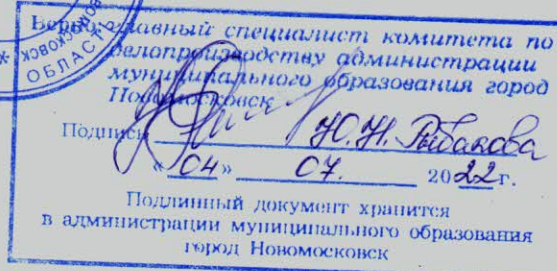 Верно: главный специалист комитета по
делопроизводству администрации
муниципального образования город
Новомосковск
Подпись Ю.Н. Рыбакова
«04» 07. 2022г.
Подлинный документ хранится
в администрации муниципального образования
город Новомосковск
НОВОМОСКОВСК
ОБЛАСТ